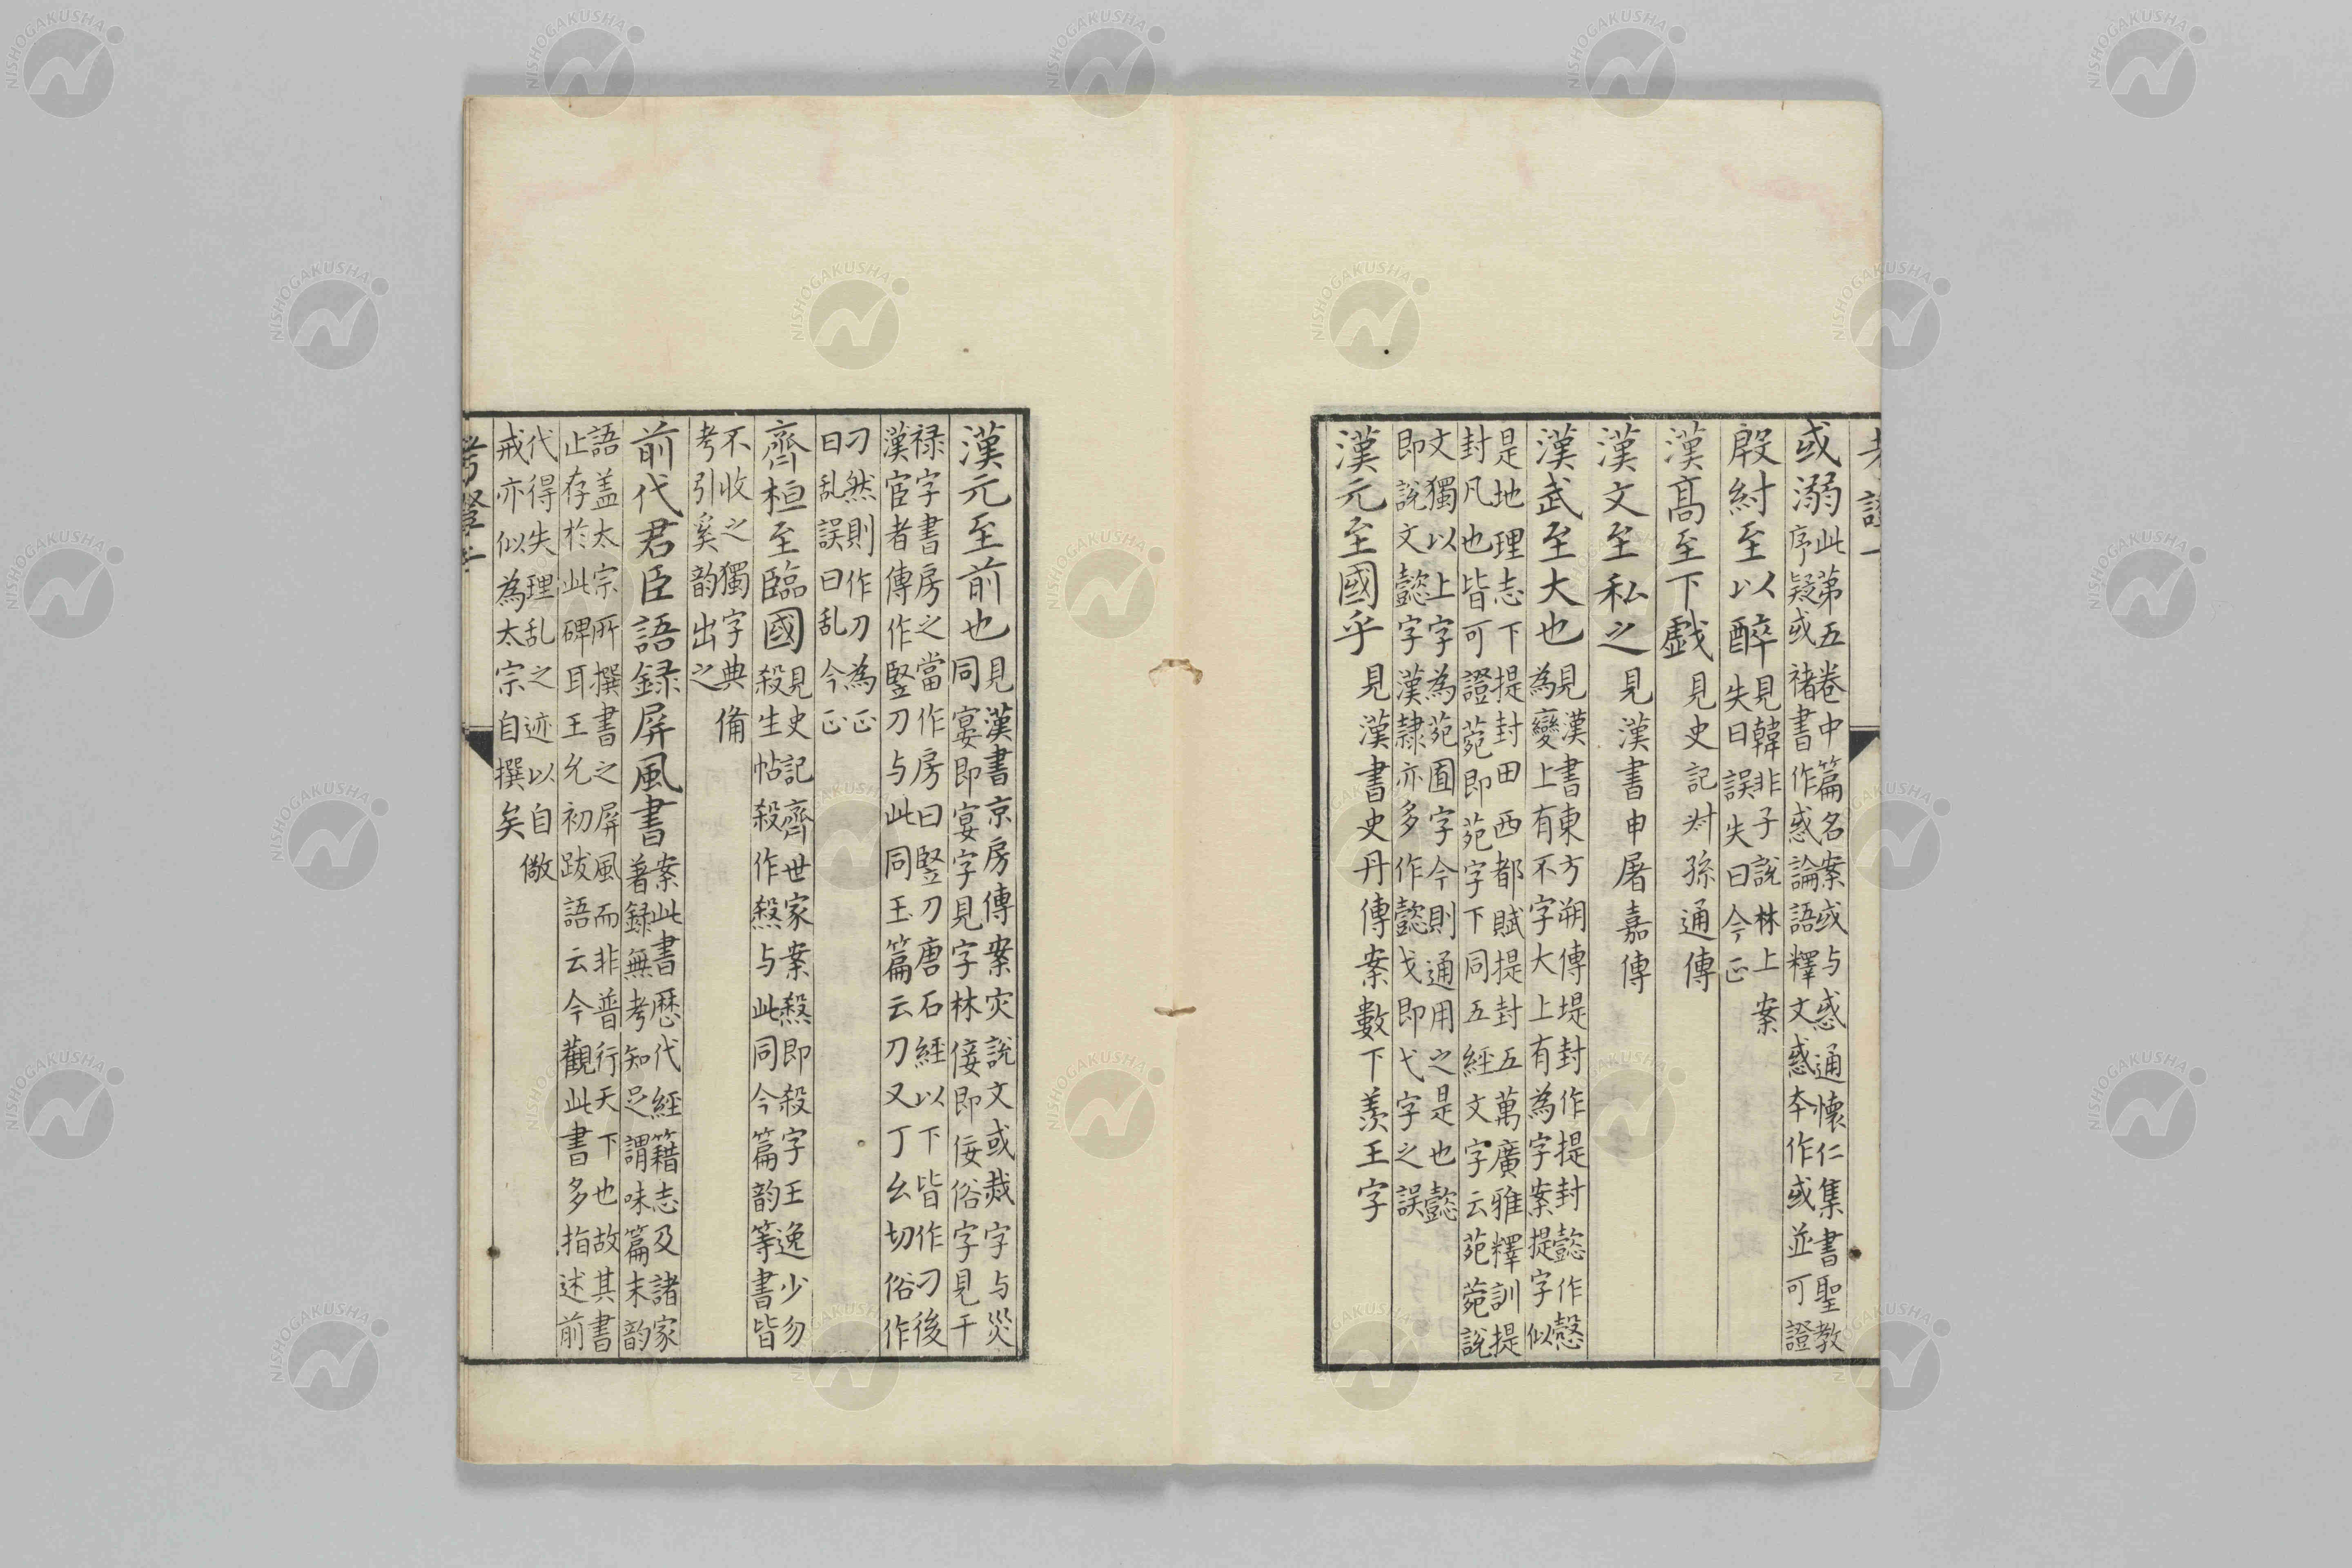 或溺此第五卷中篇名案或与惑通懷仁集書聖教
序疑或褚書作惑論語釋文惑本作或並可證
殷紂至以醉見韓非子說林上案
失曰誤失曰今正
漢高至下戯見史記叔孫通傳
漢文至私之見漢書申屠嘉傳
漢武至大也見漢書東方朔傳堤封作提封懿作愨
為變上有不字大上有為字案提字似
是地理志下提封田西都賦提封五萬廣雅釋訓提
封凡也皆可證菀即苑字下同五經文字云苑菀說
文獨以上字為苑囿字今則通用之是也懿
即說文懿字漢隸亦多作懿戈即弋字之誤
漢元至國乎見漢書史丹傳案數下羨王字
漢元至前也見漢書京房傳案灾說文或烖字与災
同宴即宴字見字林倿即佞俗字見干
禄字書房之當作房曰竪刀唐石經以下皆作刁後
漢宦者傳作竪刀与此同玉篇云刀又丁幺切俗作
刁然則作刀為正
曰乱誤曰乱今正
齊桓至臨國見史記齊世家案煞即殺字王逸少勿
殺生帖殺作煞与此同今篇韵等書皆
不收之獨字典備
考引奚韵出之
前代君臣語録屏風書案此書歷代經籍志及諸家
著録無考知足謂味篇末韵
語盖太宗所撰書之屏風而非普行天下也故其書
止存於此碑耳王允初跋語云今觀此書多指述前
代得失理乱之迹以自儆
戒亦似為太宗自撰矣